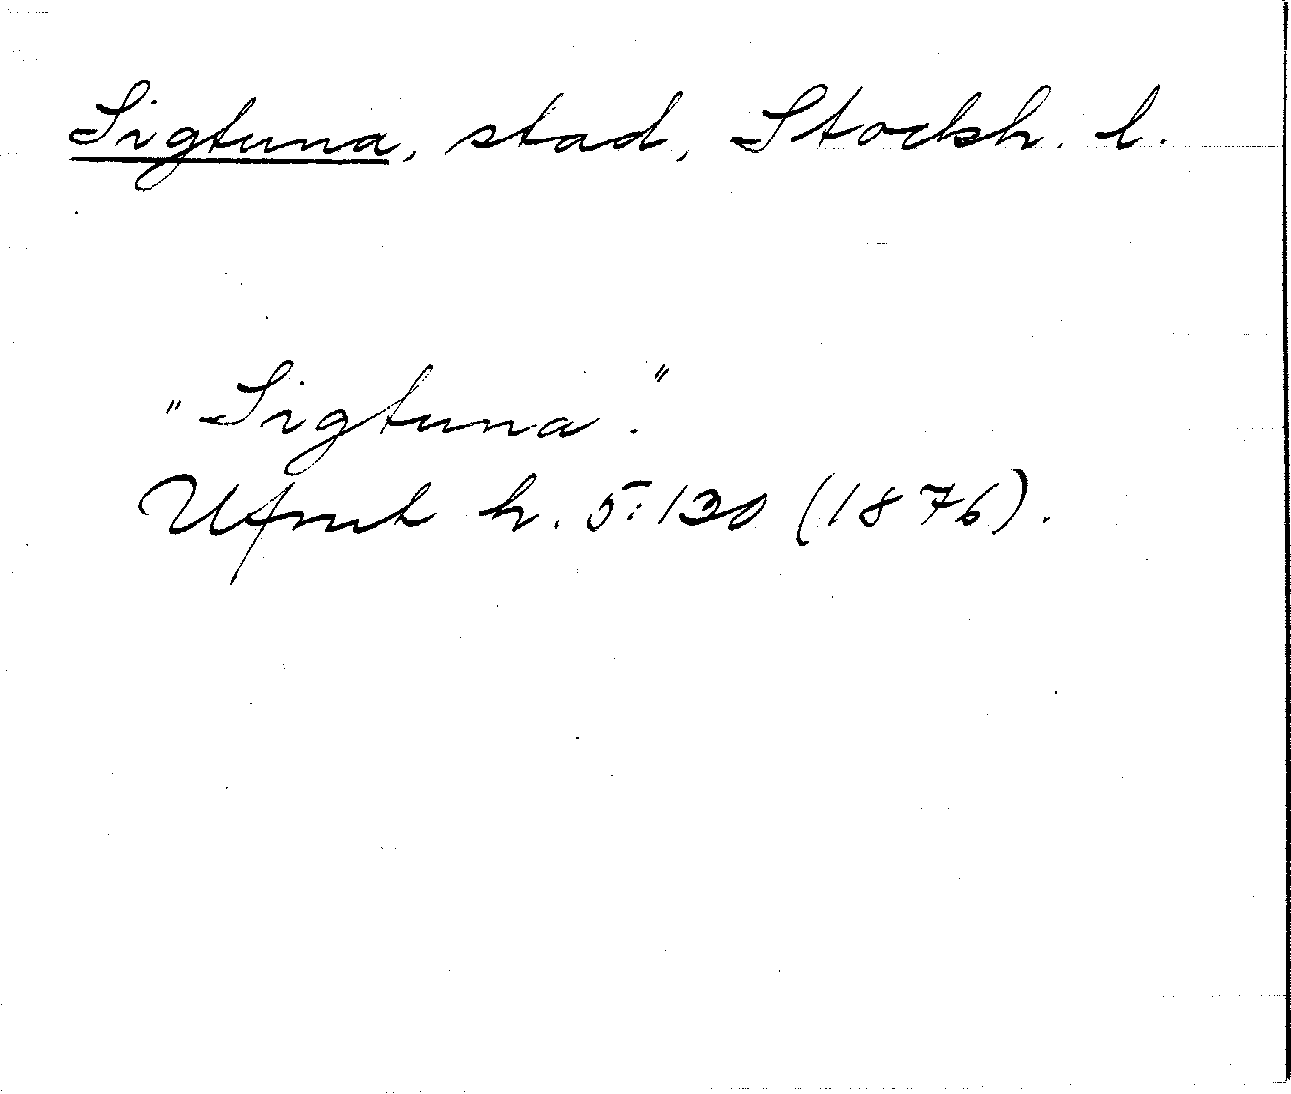 Sigtuna, stad, Stocksh. l.
"Sigtuna".
Ufmt h. 5:130 (1876).